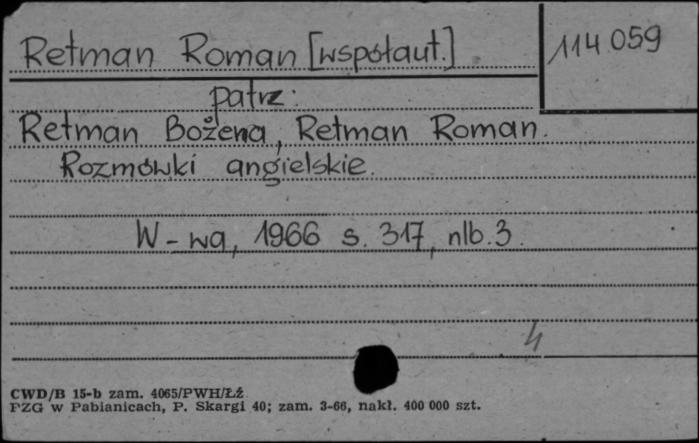 Retman Roman [współaut.]
114 059
patrz:
Retman Bożena, Retman Roman.
Rozmówki angielskie.
W-wa, 1966 s. 317, nlb. 3.
4
CWD/B 15-b zam. 4065/PWH/Łź
PZG w Pabianicach, P. Skargi 40; zam. 3-66, nakł. 400 000 szt.